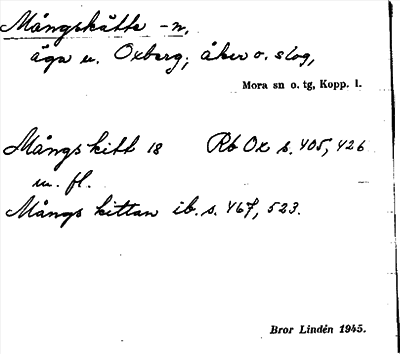 Mångskätte -n,
äga u. Oxberg; åker o. slog,
Mora sn o. tg, Kopp. l.
Mångs kitt 18 Rb Ox s. 405, 426
m. fl.
Mångs kittan ib. s. 467, 523.
Bror Lindén 1945.